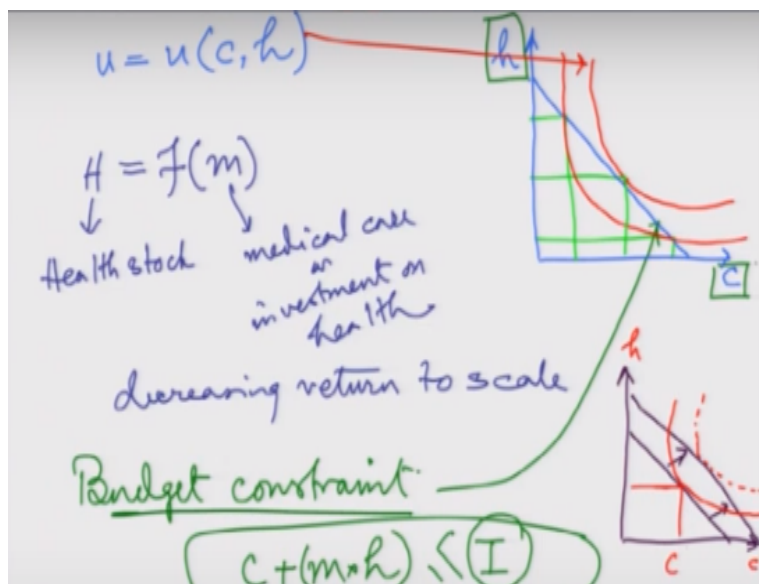 u = u(c, h)
h
H = f(m)
Health stock
medical care
or
investment on
health
c
decreasing return to scale
h
Budget constraint
C + (m*h) ≤ I
c
c